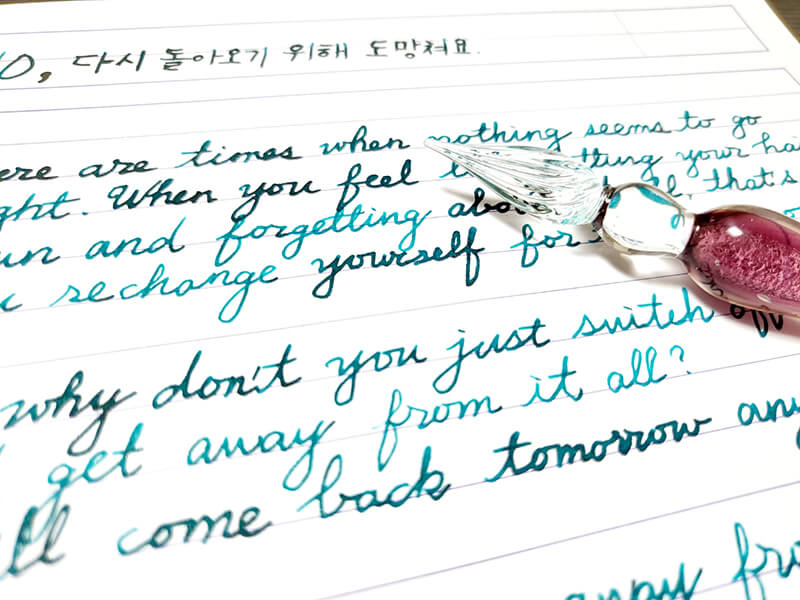 0, 다시 돌아오기 위해 도망쳐요.
ere are times when nothing seems to go
ght. When you feel tling your hai
un and forgetting abou that's
u rechange yourself for
why don't you just switch off
get away from it all?
ll come back tomorrow any
away fro